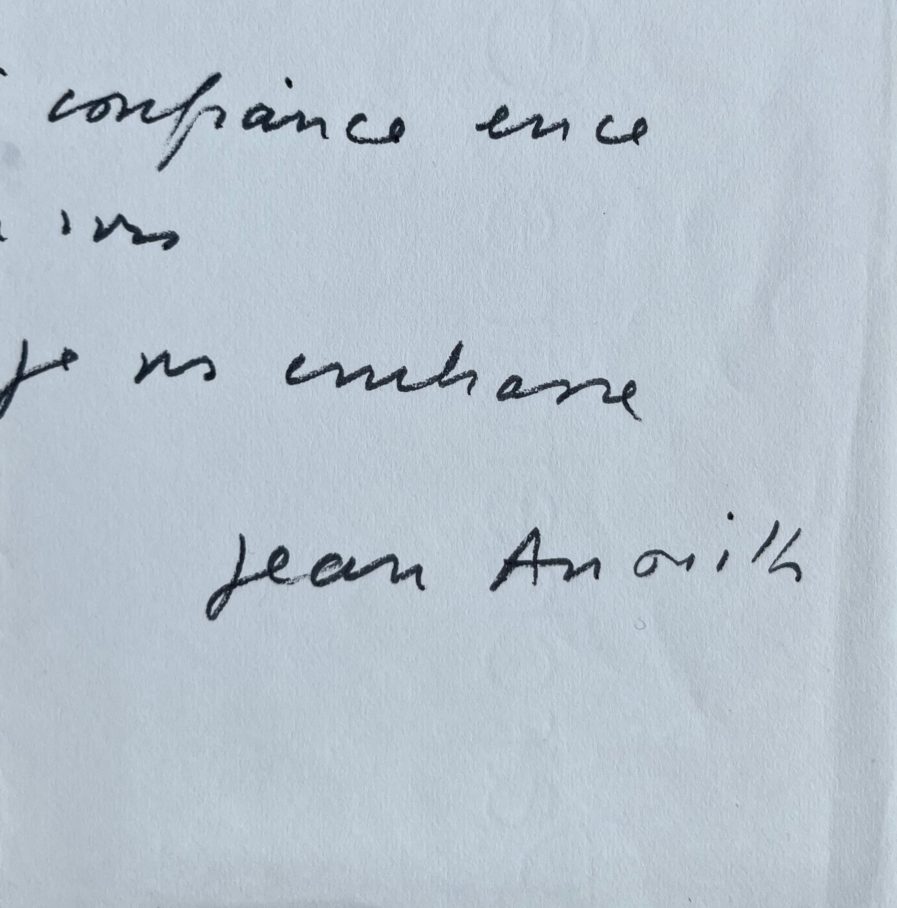 confiance en ce
Je vs embrasse
Jean Anouilh